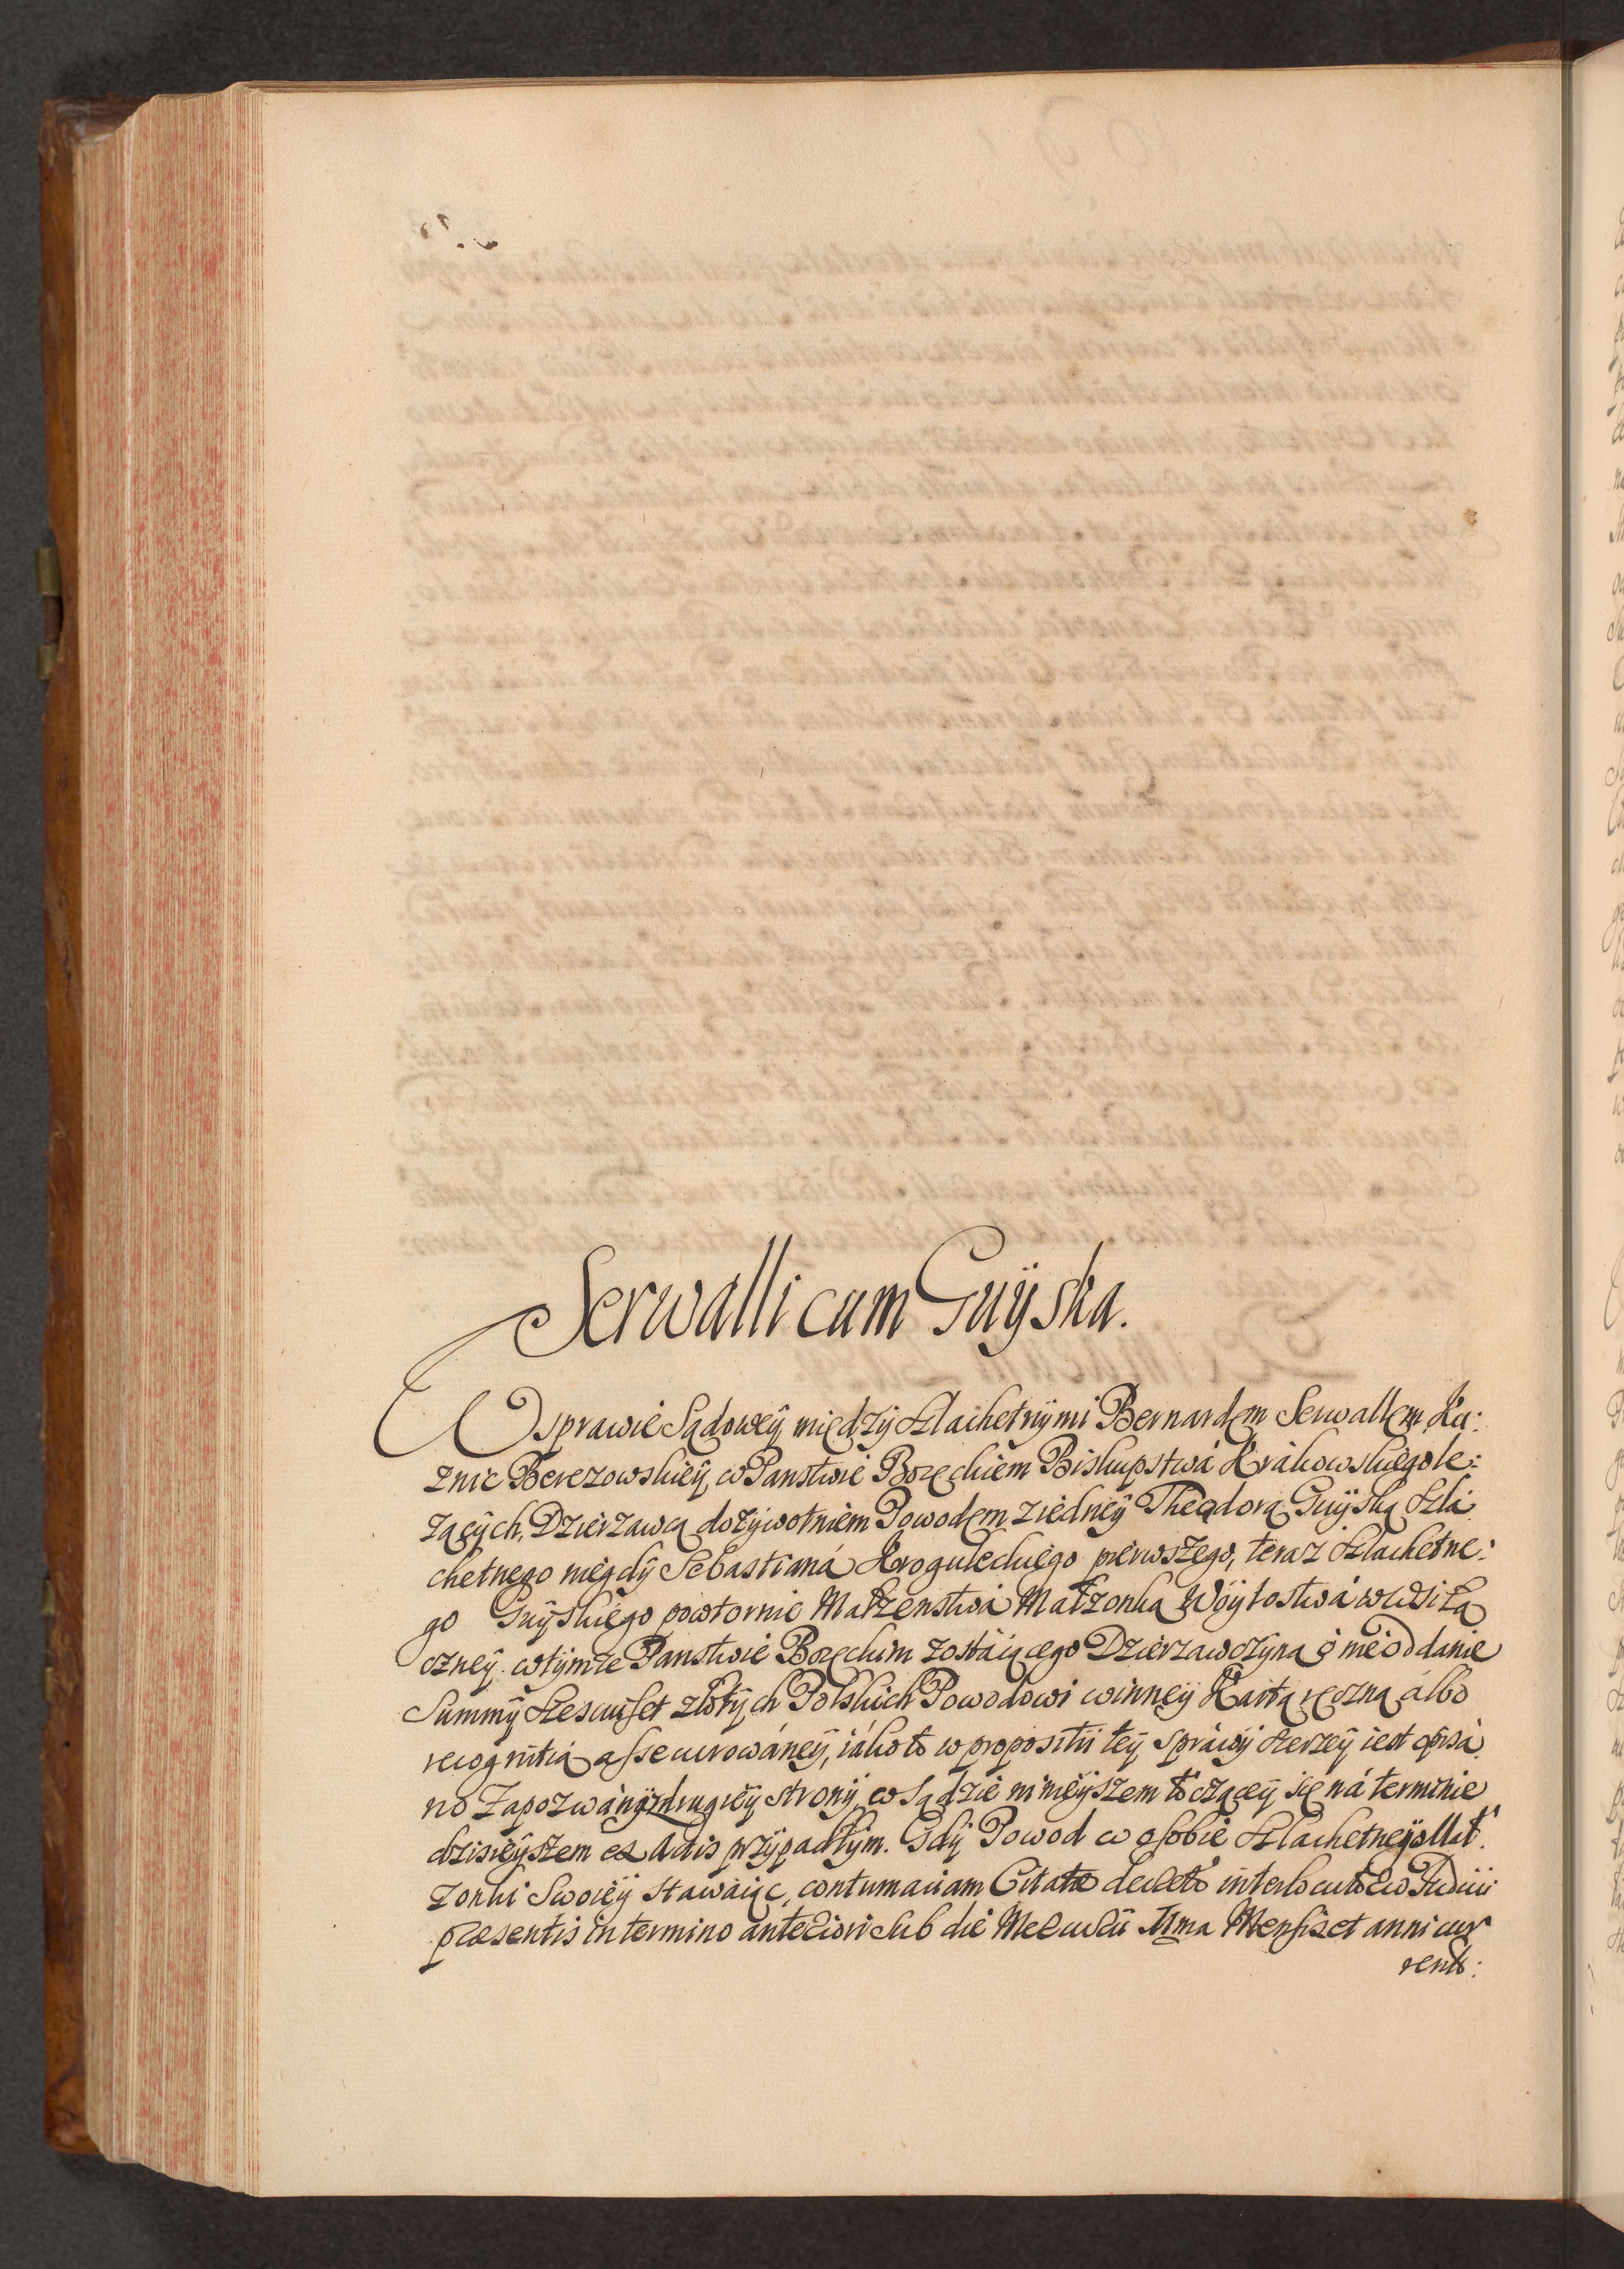 Serwalli cum Guÿska.
W sprawie Sądoweÿ międzÿ Szlachetnÿmi Bernardem Serwallem Ku:
znic Berezowskieÿ w Panstwie Bozęckiem Biskupstwá Krákowskiego le:
zącÿch, Dzierzawcą dozÿwotniem Powodem z iedneÿ Theodorą Guÿską Szla
chetnego niegdÿ Sebastianá Kroguleckiego pierwszego, teraz Szlachetne:
go Guÿskiego powtornie Małzenstwá Małzonką Woÿtostwá w Łą
czneÿ w tÿmze Panstwie Bozęckim zostáiącego Dzierzawczÿną o nieoddanie
Summÿ szesciuset złotÿch Polskich Powodowi winneÿ Kartą ręczną álbo
recognitią assecurowáneÿ, iáko to w propositii teÿ spráwÿ szerzeÿ iest opisá
no Zapozwáną z drugieÿ stronÿ, w Sądzie ninieÿszem toczączeÿ się ná terminie
dzisieÿszem ex Actis przÿpadłÿm. Gdÿ Powod w osobie Szlachetneÿ Mał
zonki Swoieÿ stawaiąc, contumaciam Citatæ decreto interlocutorio Judicii
præsentis in termino anteriori sub die Mercurii 11ma Mensis et anni cur
rent: